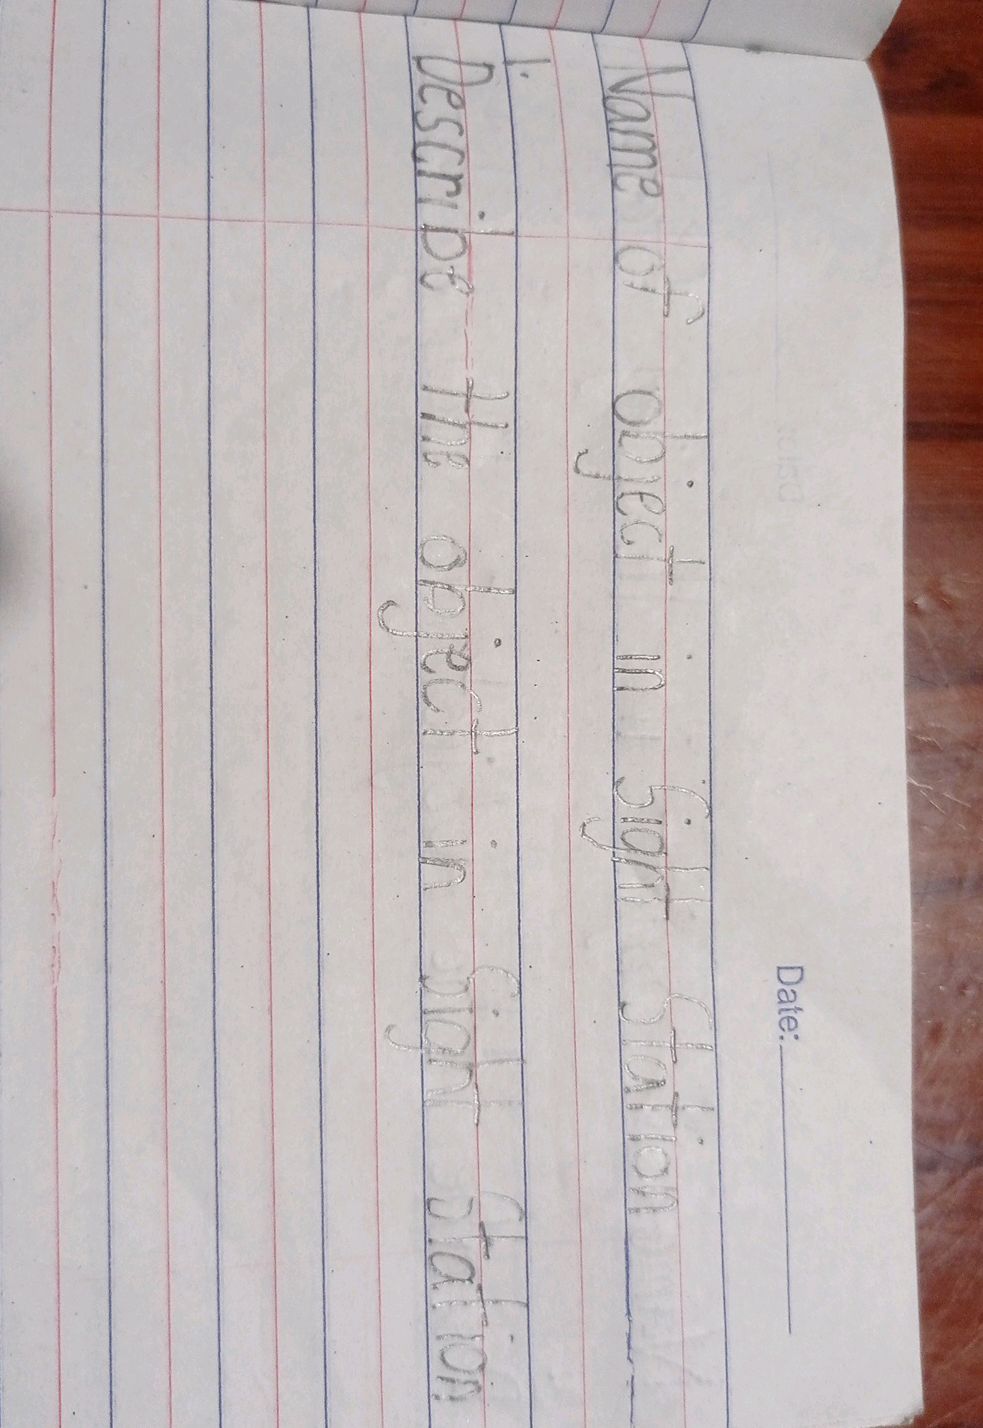 Date:
Name of object in Sight Station
1.
Describe the object in sight station